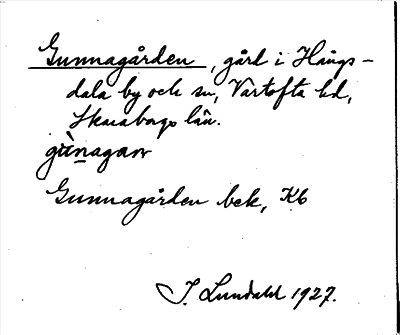 Gunnagården, gård i Hångs-
dala by och sn, Vartofta hd,
Skaraborgs län.
gùnagaɳ
Gunnagården bek, Kb
I. Lundahl 1927.